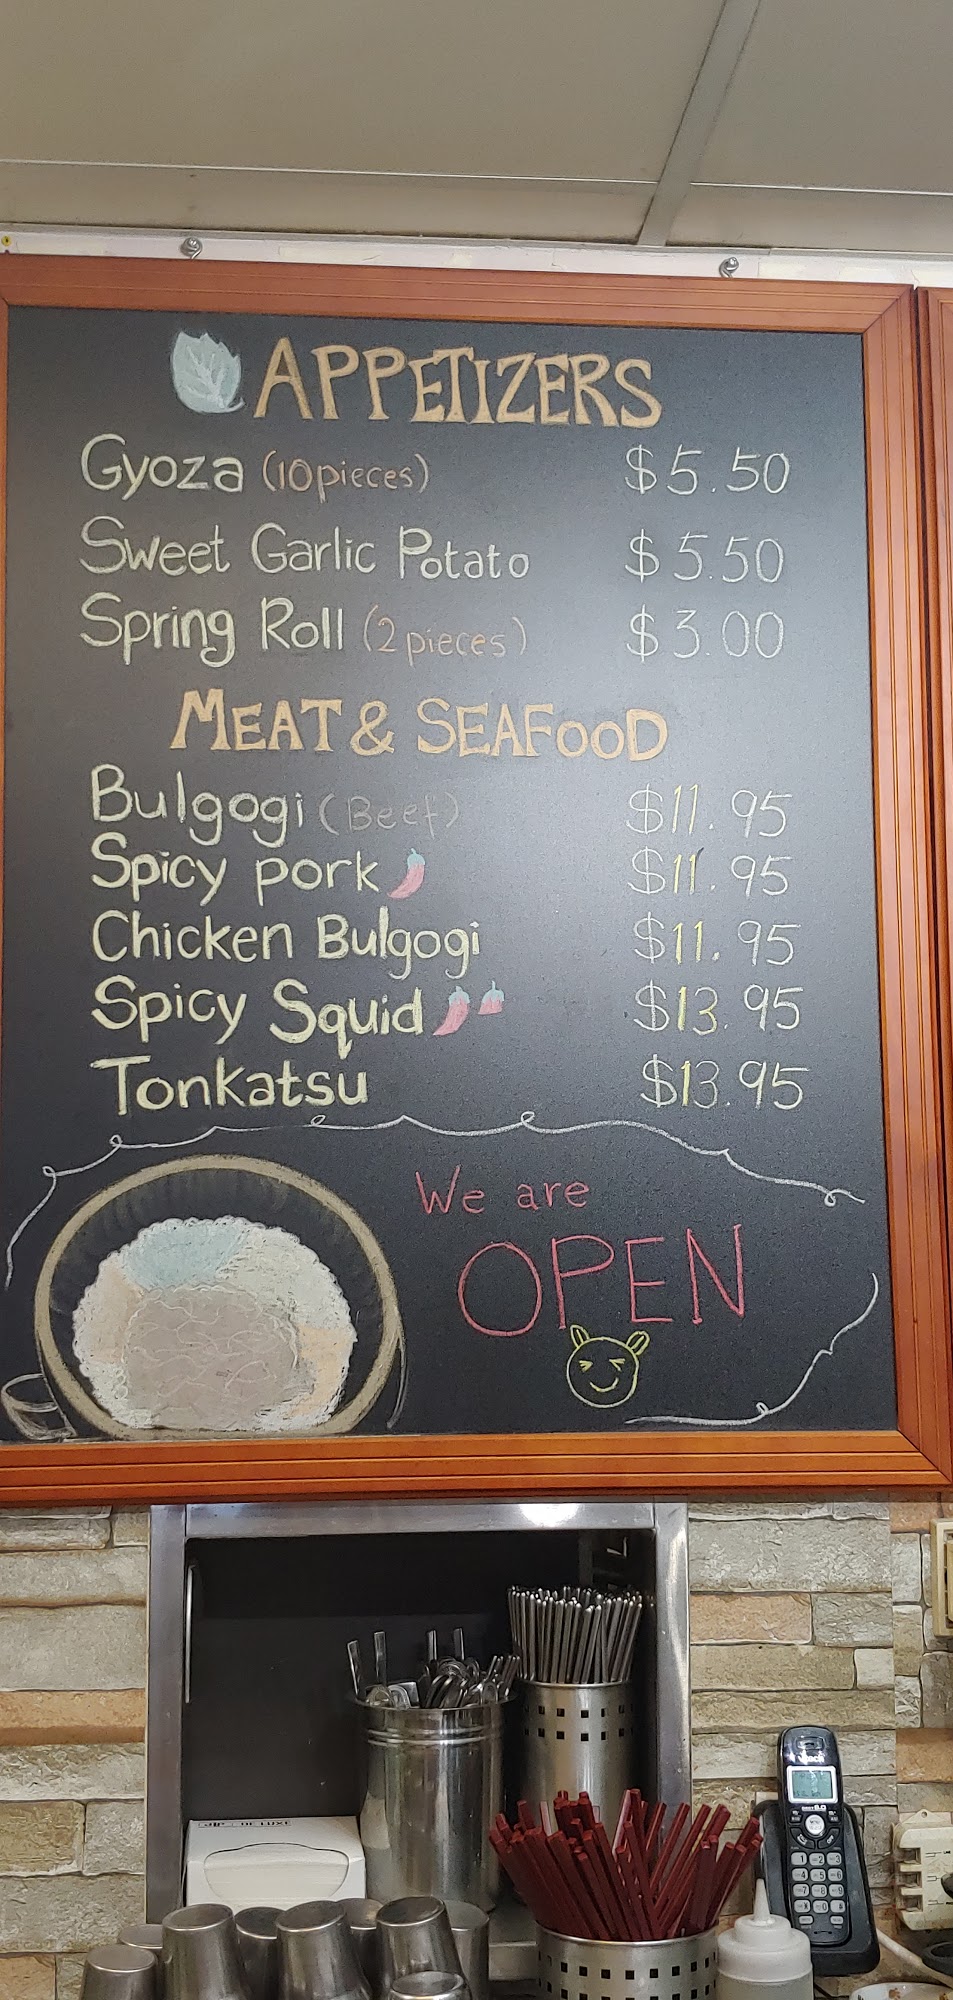 APPETIZERS
Gyoza (10 pieces) $5.50
Sweet Garlic Potato $5.50
Spring Roll (2 pieces) $3.00
MEAT & SEAFOOD
Bulgogi (Beef) $11.95
Spicy pork $11.95
Chicken Bulgogi $11.95
Spicy Squid $13.95
Tonkatsu $13.95
We are
OPEN
vtech